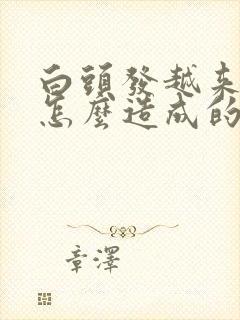 白頭發越来
怎麽造成的
章澤